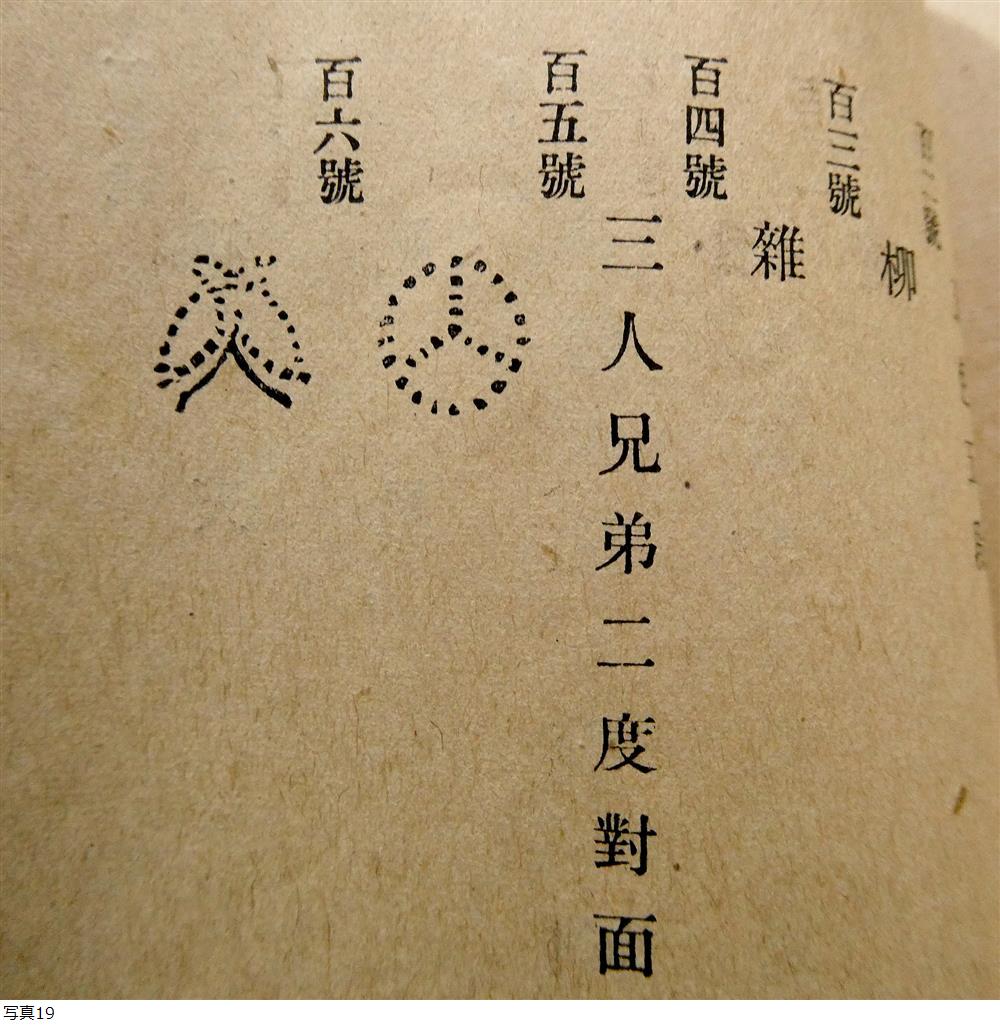 柳
百三號
雜
百四號
三人兄弟二度對面
百五號
百六號
写真19